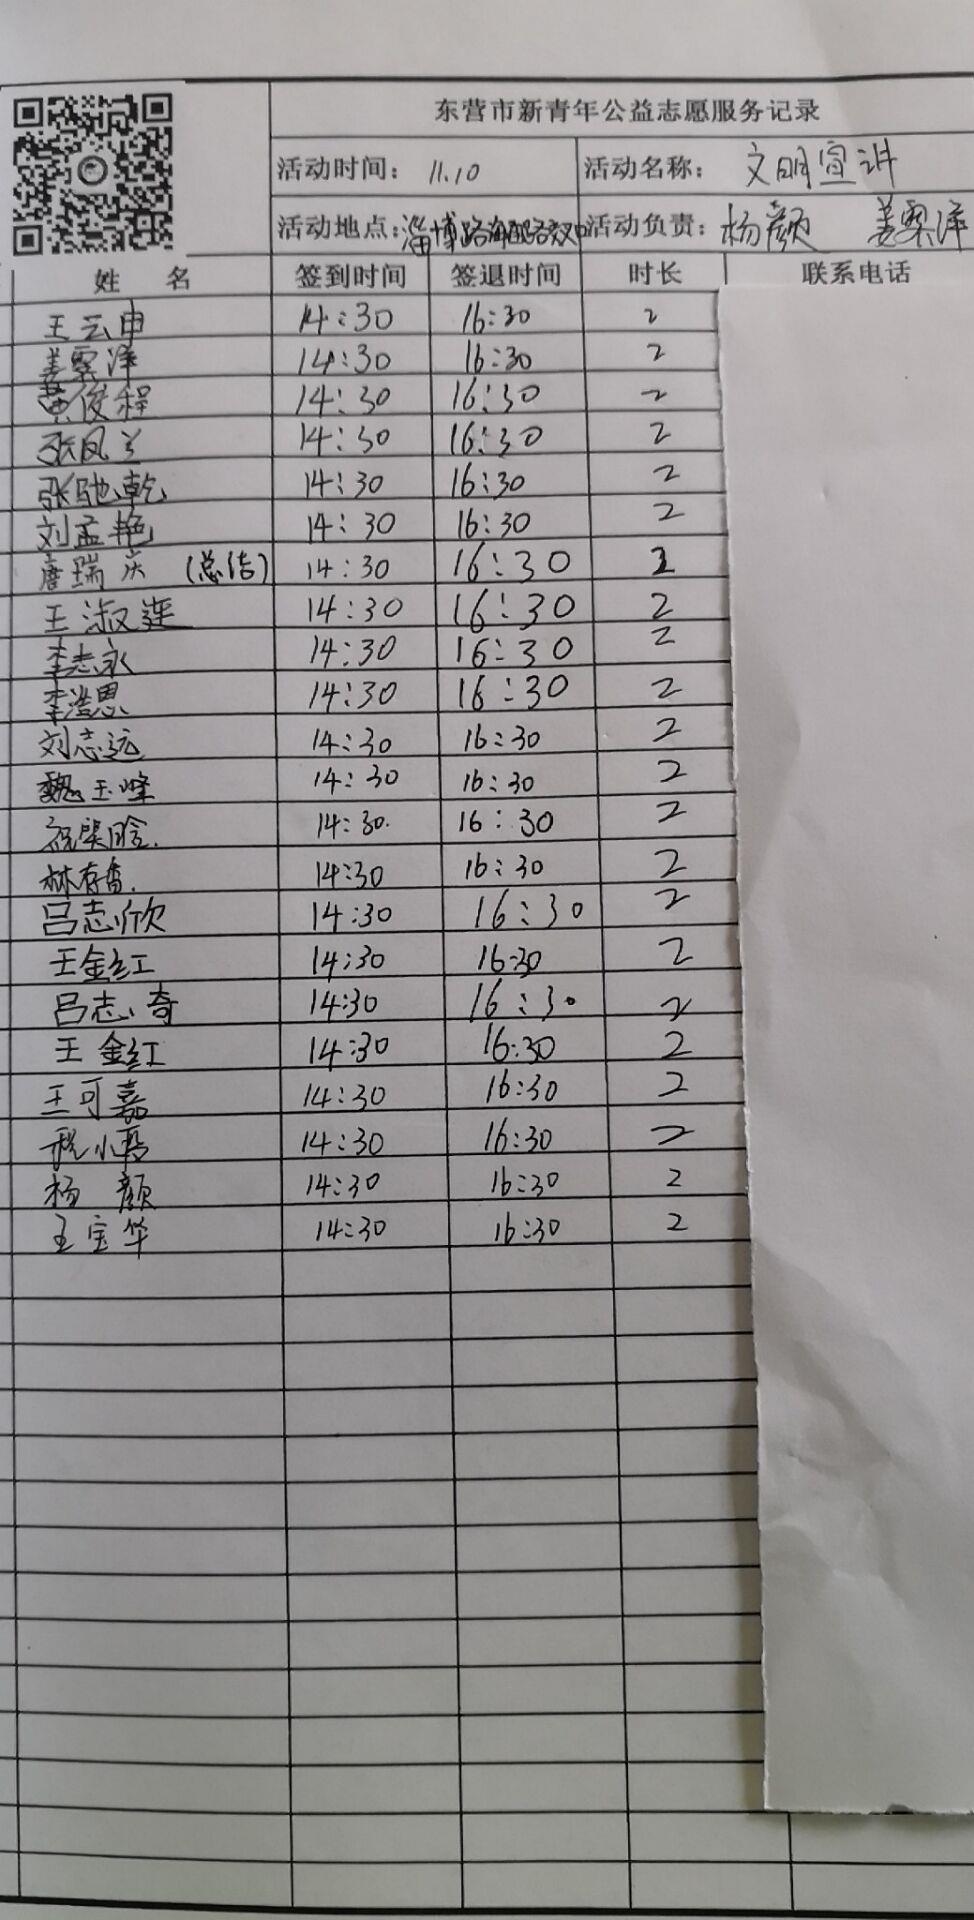 东营市新青年公益志愿服务记录
活动时间: 11.10 活动名称: 文明宣讲
活动地点: 淄博路 活动负责: 杨颜 姜霁泽
姓 名 签到时间 签退时间 时长 联系电话
王云申 14:30 16:30 2
姜霁泽 14:30 16:30 2
黄俊程 14:30 16:30 2
张凤兰 14:30 16:30 2
张驰乾 14:30 16:30 2
刘孟艳 14:30 16:30 2
唐瑞庆 (总结) 14:30 16:30 2
王淑莲 14:30 16:30 2
李志永 14:30 16:30 2
李浩恩 14:30 16:30 2
刘志远 14:30 16:30 2
魏玉峰 14:30 16:30 2
14:30. 16:30 2
林存香. 14:30 16:30 2
吕志欣 14:30 16:30 2
王金红 14:30 16:30 2
吕志奇 14:30 16:30 2
王金红 14:30 16:30 2
王可嘉 14:30 16:30 2
14:30 16:30 2
杨颜 14:30 16:30 2
王宝华 14:30 16:30 2